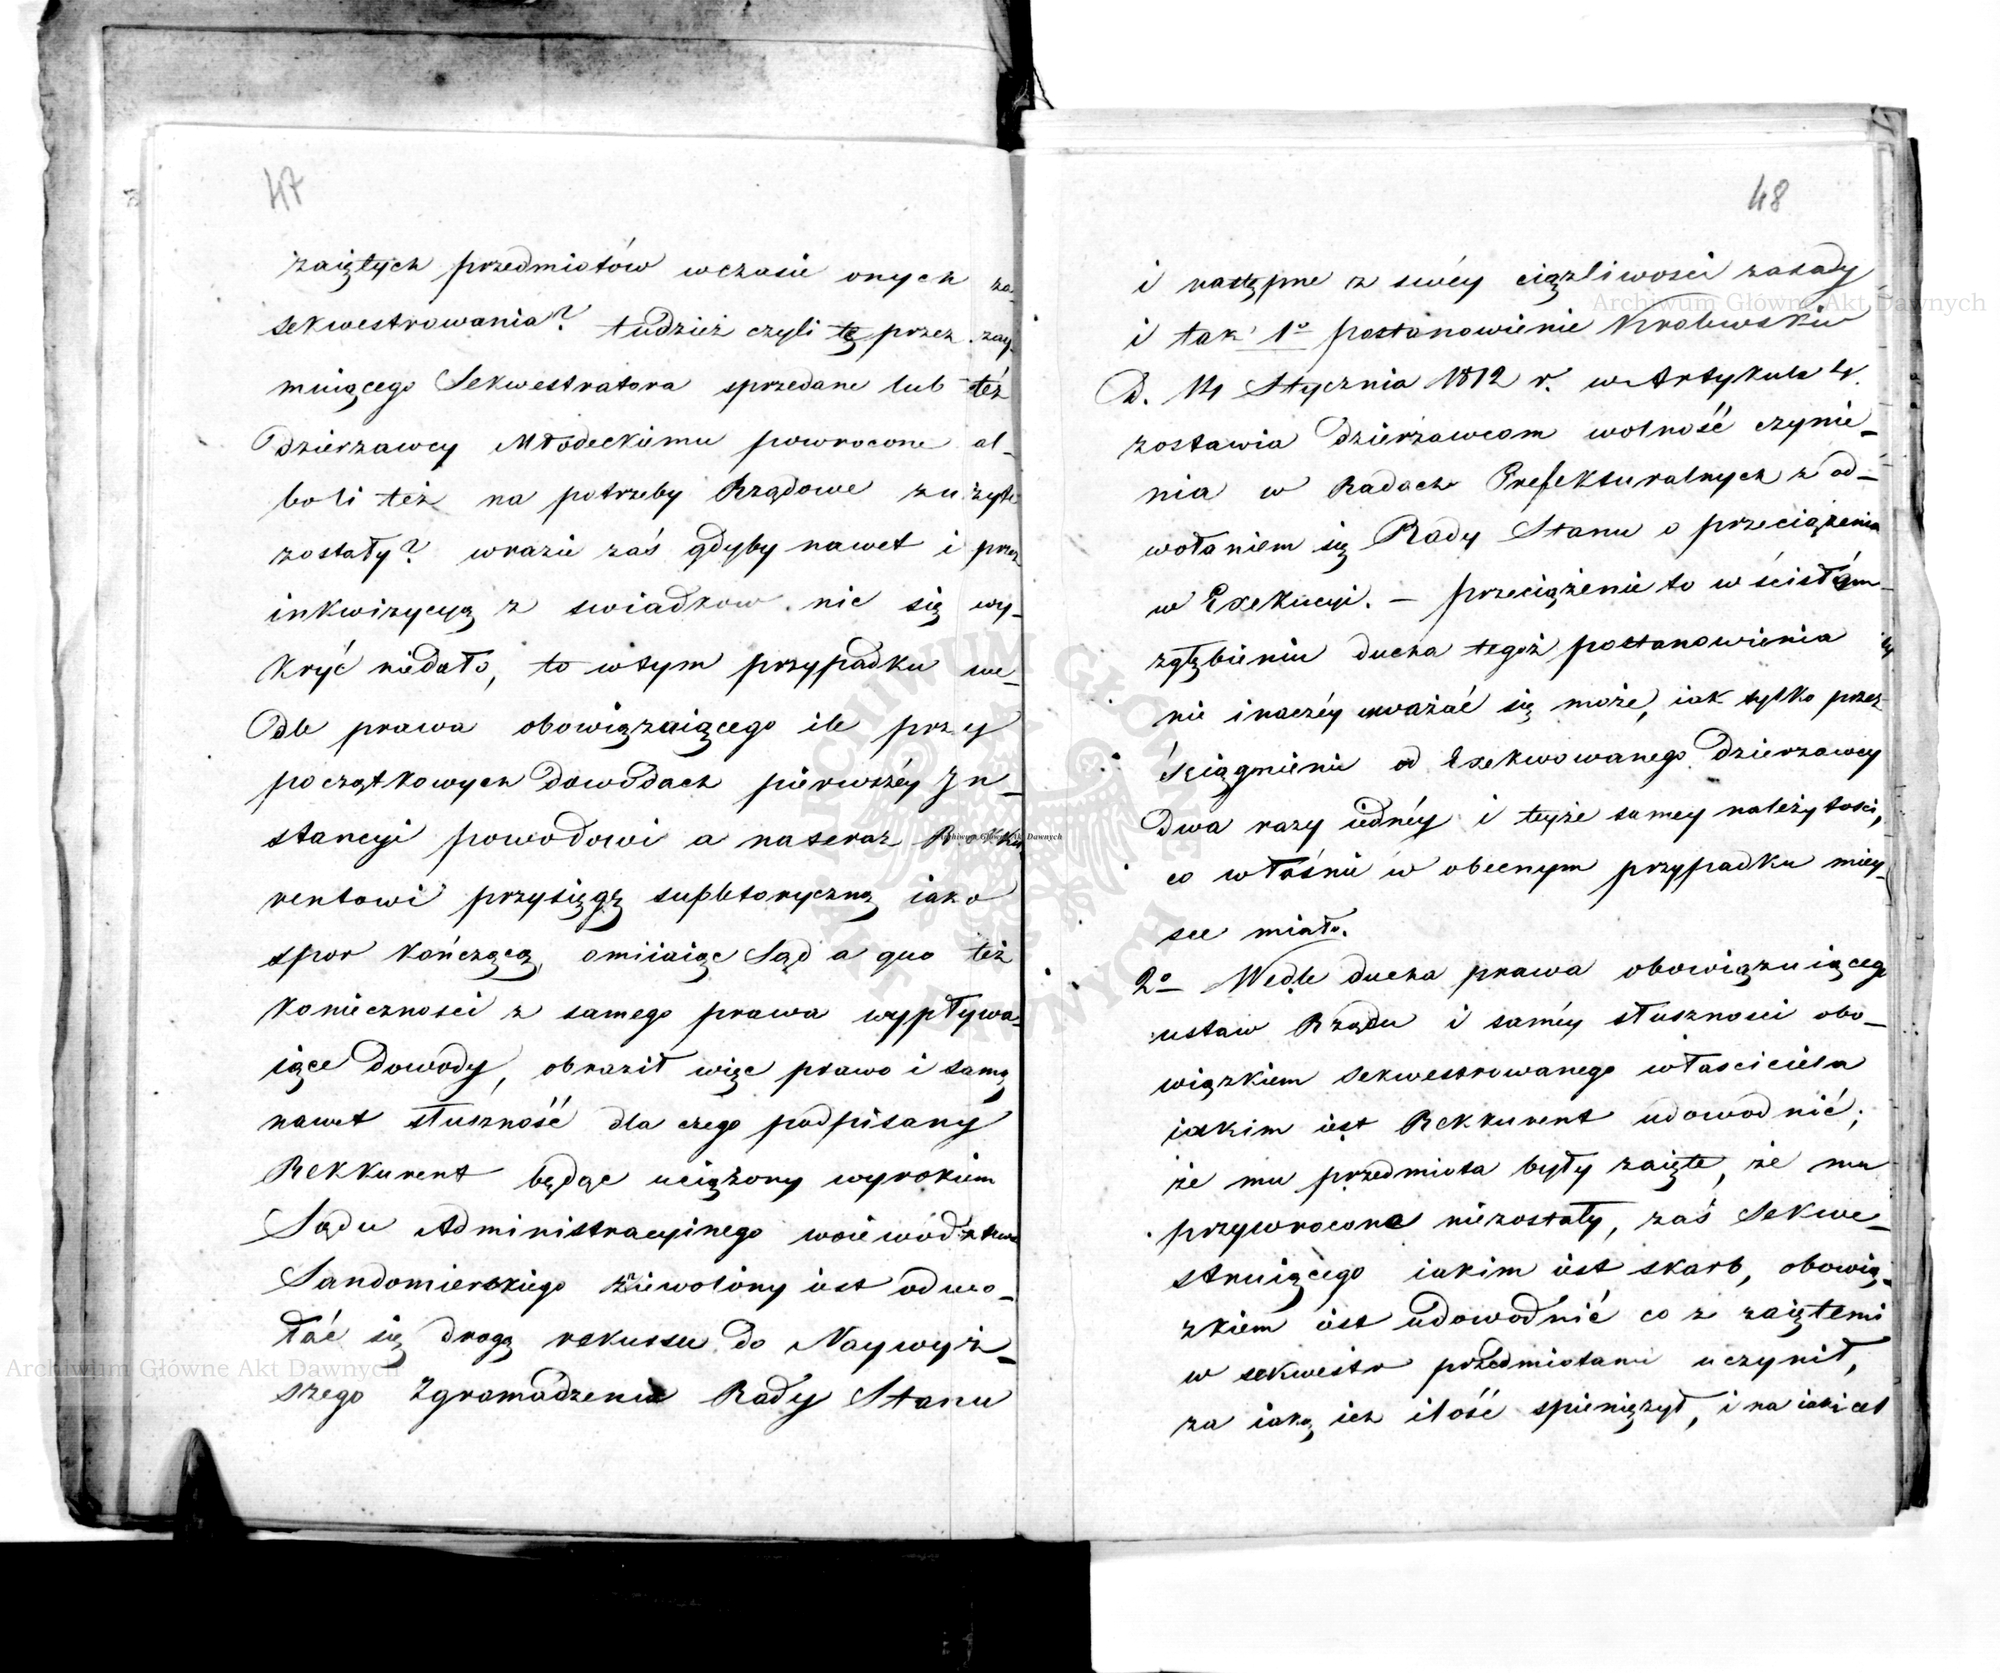 47
zaiętych przedmiotów wczasie onych za-
sekwestrowania? tudzież czyli te przez zay-
muiącego Sekwestratora sprzedane lub też
Dzierzawcy Młodeckiemu powrocone al-
boli też na potrzeby Rządowe zużyte
zostały? wrazie zaś gdyby nawet i przez
inkwizycyą z swiadkow nic się wy-
kryć niedało, to wtym przypadku we-
dle prawa obowięzuiącego ile przy
początkowych dowodach pierwszéy In-
stancyi powodowi a nateraz Rekku-
rentowi przysięgę supletoryczną iako
spor kończącą, omiiaiąc Sąd a quo też
konieczności z samego prawa wypływa-
iące dowody, obraził więc prawo i samą
nawet słuszność dla czego podpisany
Rekkurent będąc uciążony wyrokiem
Sądu Administracyinego woiewodztwa
Sandomierskiego zniewolony iest odwo-
łać się drogą rekursu do Naywyż-
szego Zgromadzenia Rady Stanu
48
i następne z swéy ciążliwości zasady
i tak 1o postanowienie Krolewskie
D. 14 Stycznia 1812 r. w Artykule 4.
zostawia Dzierzawcom wolność czynie-
nia w Radach Prefekturalnych z od-
wołaniem się Rady Stanu o przeciążenia
w Exekucyi. – przeciążenie to w ścisłym
zgłębieniu ducha tegoż postanowienia
nie inaczéy uważać się może, iak tylko przez
ściągnienie od Exekwowanego Dzierzawcy
Dwa razy iednéy i teyże samey należytości,
co właśnie w obecnym przypadku miey-
sce miało.
2o Wedle ducha prawa obowiązuiącego
ustaw Rządu i saméy słuszności obo-
wiązkiem sekwestrowanego właściciela
iakim iest Rekkurent udowodnić,
że mu przedmiota były zaięte, że mu
przywrocone niezostały, zaś Sekwe-
struiącego iakim iest skarb, obowią-
zkiem iest udowodnić co z zaiętemi
w sekwestr przedmiotami uczynił,
za iaką ich ilość spieniężył, i na iaki cel
Archiwum Główne Akt Dawnych
Archiwum Główne Akt Dawnych
Archiwum Główne Akt Dawnych